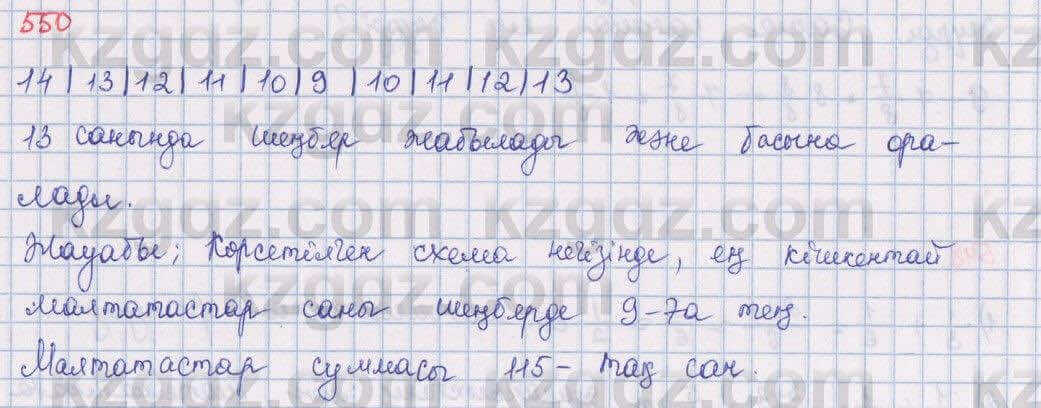 550
14 | 13 | 12 | 11 | 10 | 9 | 10 | 11 | 12 | 13
13 санында шеңбер жабылады және басына ора-
лады.
Жауабы; Көрсетілген схема негізінде, ең кішкентай
малтатастар саны шеңберде 9-7а тең.
Малтатастар суммасы 115 - тақ сан.